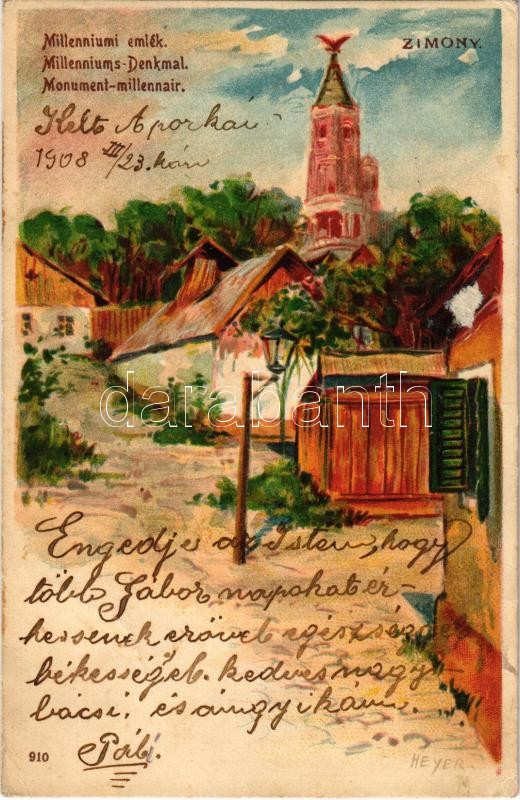 Millenniumi emlék.
Millenniums-Denkmal.
Monument-millennair.
ZIMONY.
Kelt Aporkai
1908 III/23.kán
darabanth
Engedje az Isten, hogy
több Gábor napokat ér-
hessenek erővel egészséggel
békességgel. kedves nagy-
bácsi. és ángyikám.
Pali.
910
HEYER